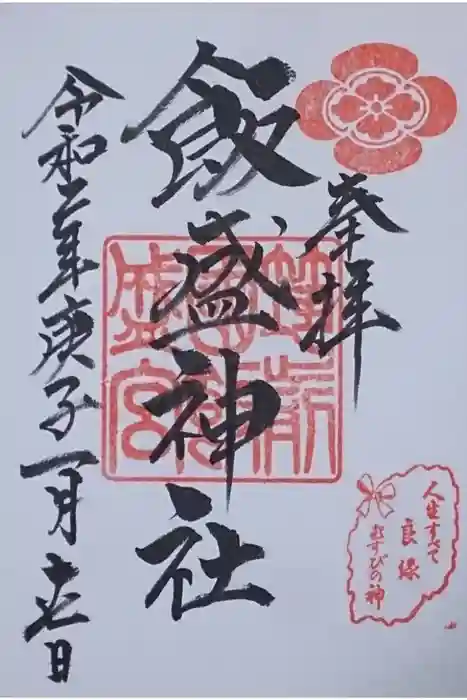 奉拝
飯盛神社
令和二年庚子一月十七日
筑前
飯盛宮
人生すべて
良縁
むすびの神